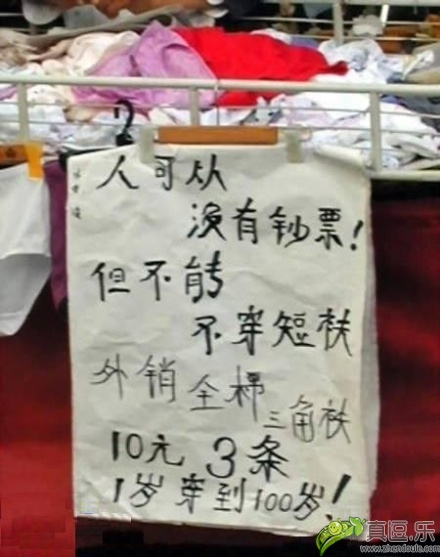 人可从
没有钞票!
但不能
不穿短衭
外销全棉
三角衭
10元 3条
1岁穿到100岁!
真逗.乐
www.zhendoule.com